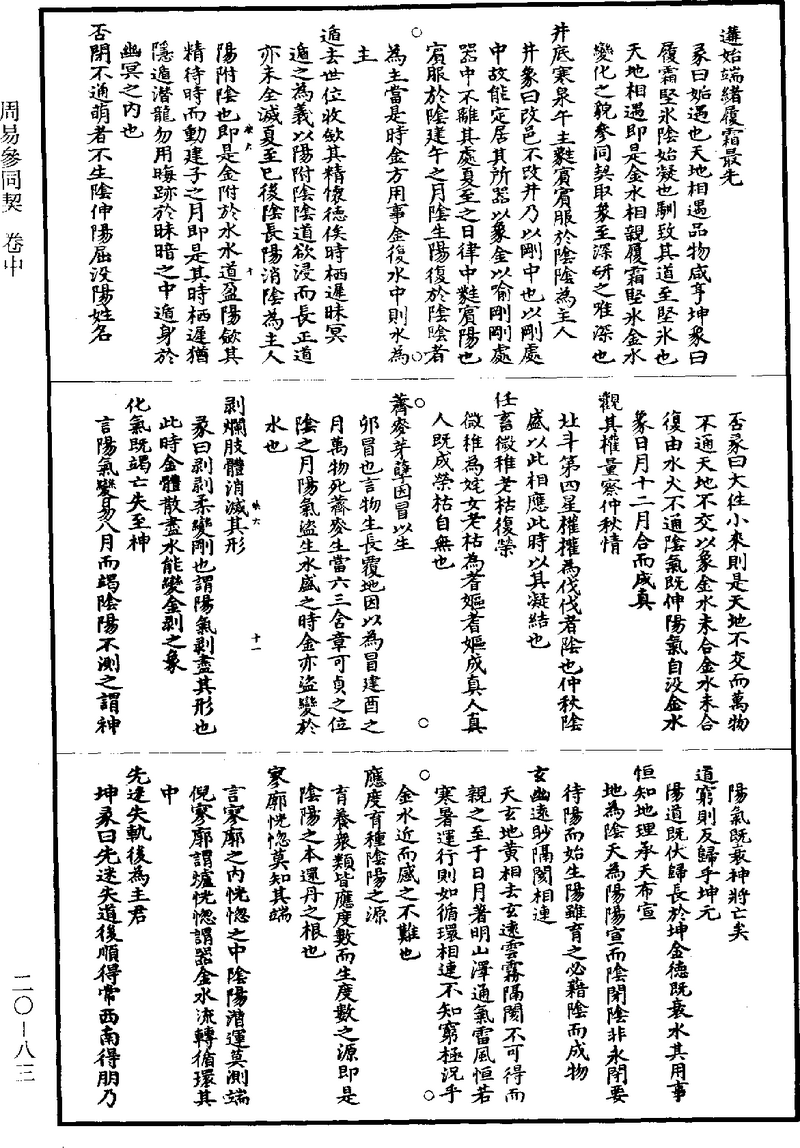 遘始端緒履霜最先
彖曰姤遇也天地相遇品物咸亨坤象曰
履霜堅氷陰始凝也馴致其道至堅氷也
天地相遇即是金水相親履霜堅氷金水
變化之貌參同契取象至深研之雅深也
井底寒泉午主蕤賓賓服於陰陰為主人
井彖曰改邑不改井乃以剛中也以剛處
中故能定居其所器以象金以喻剛剛處
器中不離其處夏至之日律中蕤賓陽也
賓服於陰建午之月陰生陽復於陰陰者
為主當是時金方用事金復水中則水為
主
遁去世位收斂其精懷德俟時栖遲昧冥
遁之為義以陽附陰陰道欲浸而長正道
亦未全滅夏至已後陰長陽消陰為主人
陽附陰也即是金附於水水道盈陽斂其
精待時而動建子之月即是其時栖遲猶
隱遁潛龍勿用晦跡於昧暗之中遁身於
幽冥之內也
否閉不通萌者不生陰伸陽屈没陽姓名
否彖曰大往小來則是天地不交而萬物
不通天地不交以象金水未合金水未合
復由水火不通陰氣既伸陽氣自没金水
象日月十二月合而成真
觀其權量察仲秋情
北斗第四星權權為伐伐者陰也仲秋陰
盛以此相應此時以其凝結也
任畜微稚老枯復榮
微稚為姹女老枯為耆嫗耆嫗成真人真
人既成榮枯自無也
薺麥芽蘗因冒以生
卯冒也言物生長覆地因以為冒建酉之
月萬物死薺麥生當六三含章可貞之位
陰之月陽氣盜生水盛之時金亦盜變於
水也
剥爛肢體消滅其形
彖曰剥剥柔變剛也謂陽氣剥盡其形也
此時金體散盡水能變金剥之象
化氣既竭亡失至神
言陽氣變易八月而竭陰陽不測之謂神
陽氣既衰神將亡矣
道窮則反歸乎坤元
陽道既伏歸長於坤金德既衰水其用事
恒知地理承天布宣
地為陰天為陽陽宣而陰閉陰非永閉要
待陽而始生陽雖育之必藉陰而成物
玄幽遠眇隔閡相連
天玄地黄相去玄遠雲霧隔閡不可得而
親之至于日月著明山澤通氣雷風恒若
寒暑運行則如循環相連不知窮極況乎
金水近而感之不難也
應度育種陰陽之源
育養衆類皆應度數而生度數之源即是
陰陽之本還丹之根也
寥廓恍惚莫知其端
言寥廓之内恍惚之中陰陽潛運莫測端
倪寥廓謂爐恍惚謂器金水流轉循環其
中
先迷失軌後為主君
坤彖曰先迷失道後順得常西南得朋乃
周易參同契　卷中
二〇－八三